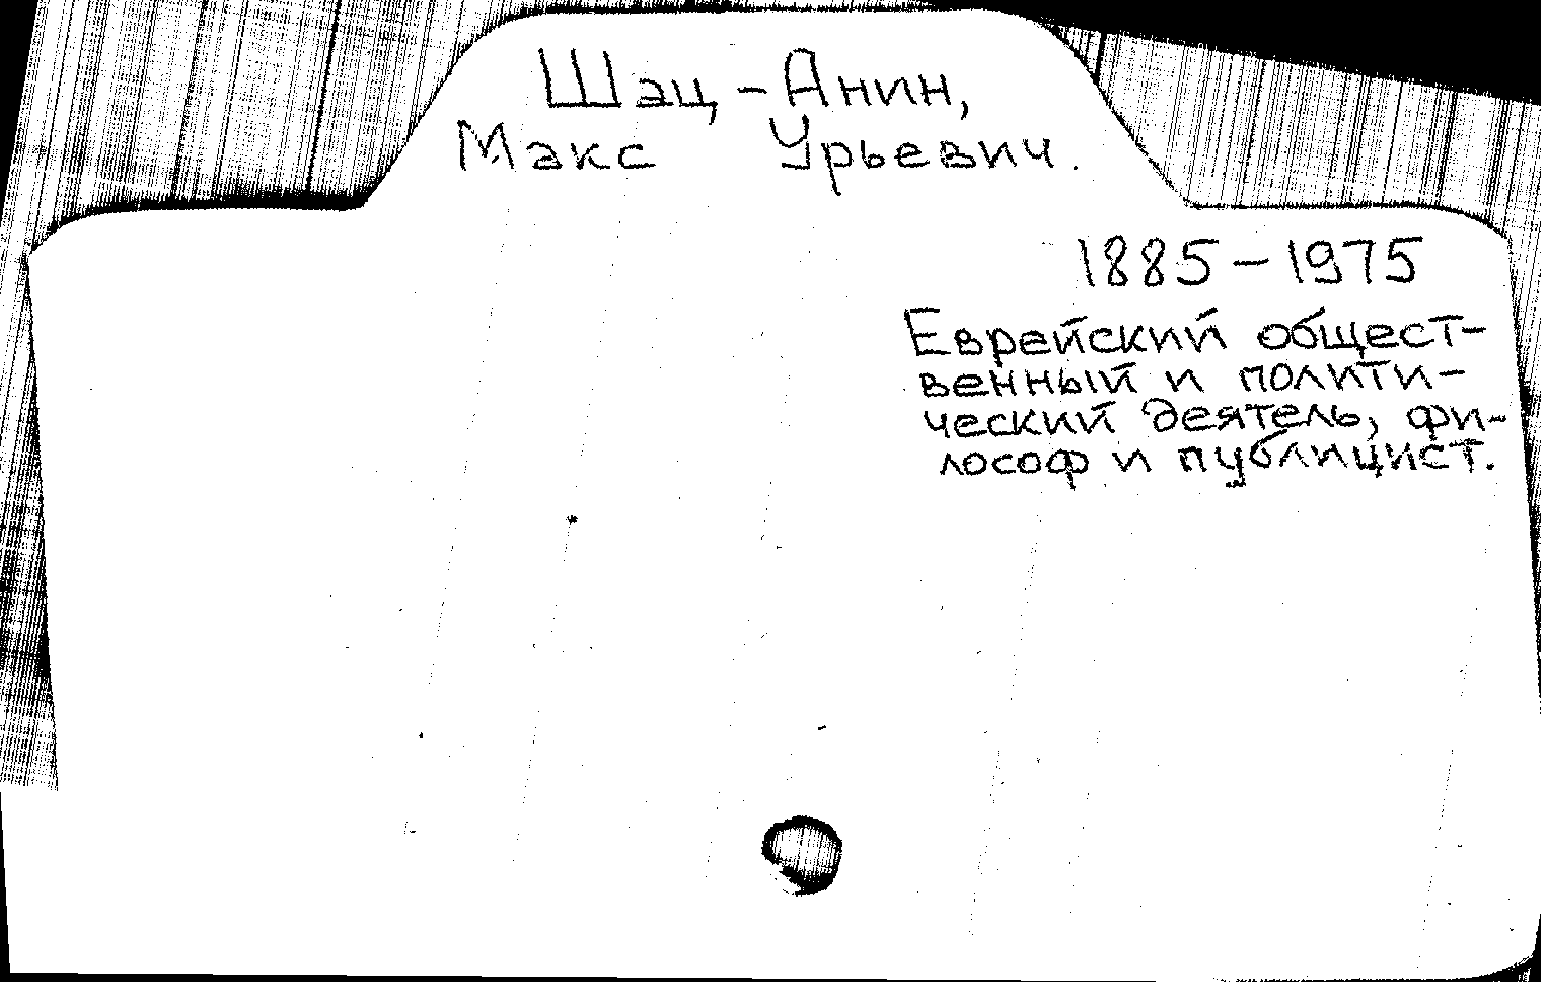 Шац-Анин,
Макс Урьевич.
1885-1975
Еврейский общест-
венный и полити-
ческий деятель, фи-
лософ и публицист.